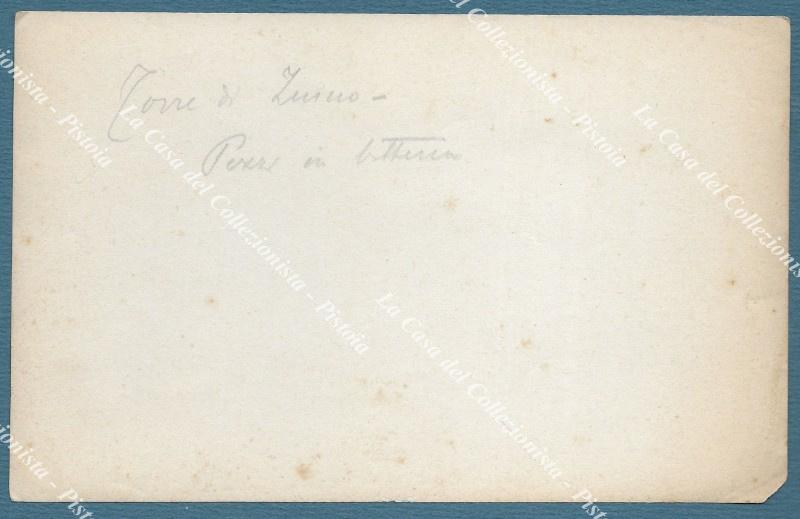 Torre di Zuino -
Pezzi in batteria
La Casa del Collezionista - Pistoia
La Casa del Collezionista - Pistoia
La Casa del Collezionista - Pistoia
La Casa del Collezionista - Pistoia